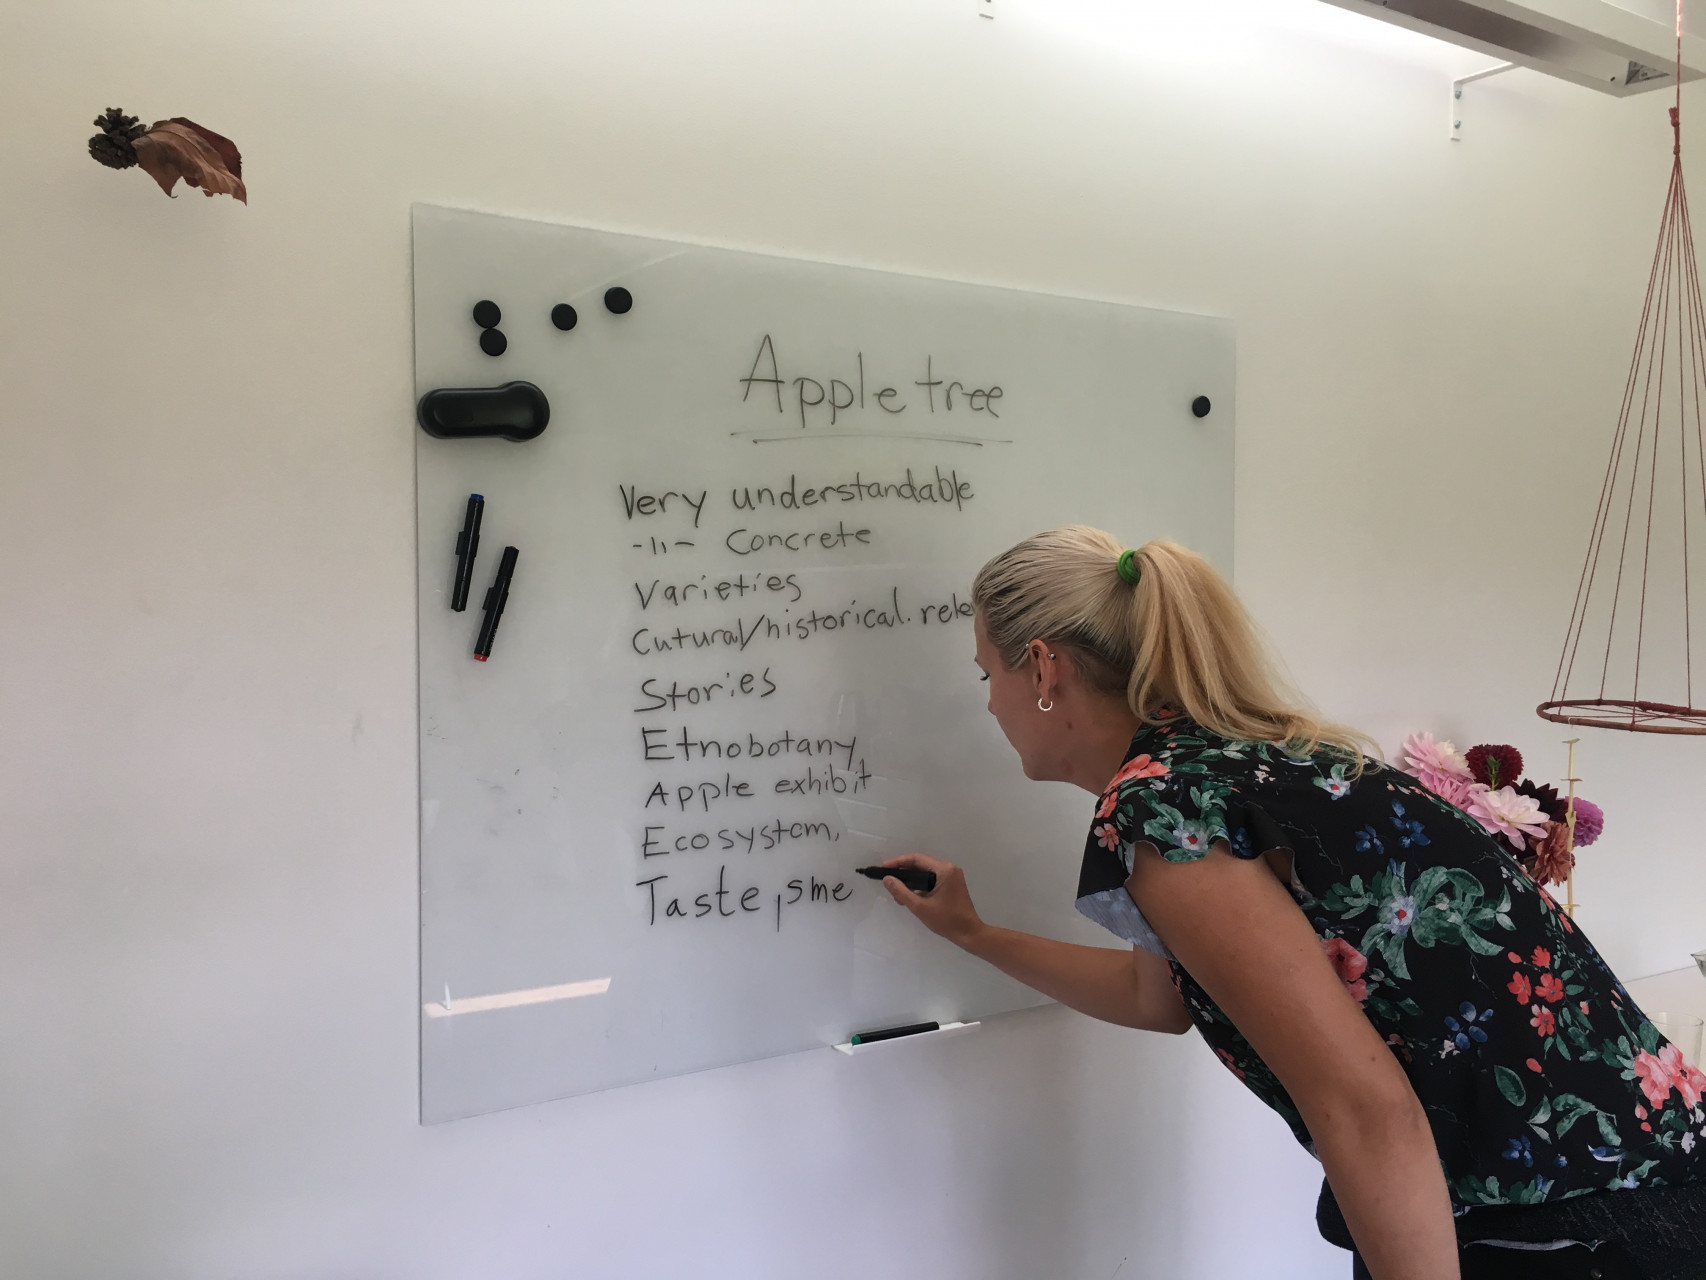 Apple tree
Very understandable
-11- Concrete
Varieties
Cutural/historical. rele
Stories
Etnobotany
Apple exhibit
Ecosystem,
Taste, sme